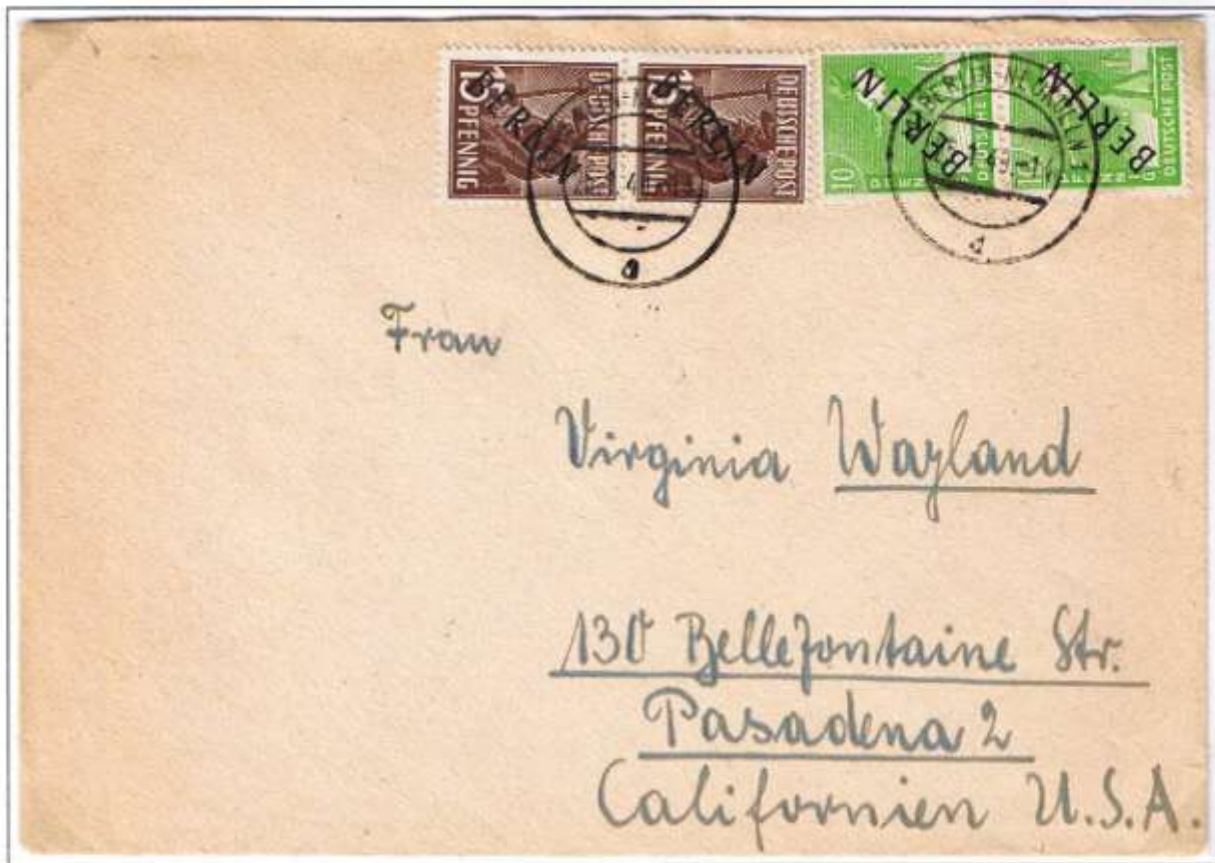 15 PFENNIG DEUTSCHE POST BERLIN
15 PFENNIG DEUTSCHE POST BERLIN
10 PFENNIG DEUTSCHE POST BERLIN
PFENNIG DEUTSCHE POST BERLIN
BERLIN-NEUKÖLLN 1
a
d
Frau
Virginia Wayland
130 Bellefontaine Str.
Pasadena 2
Californien U.S.A.